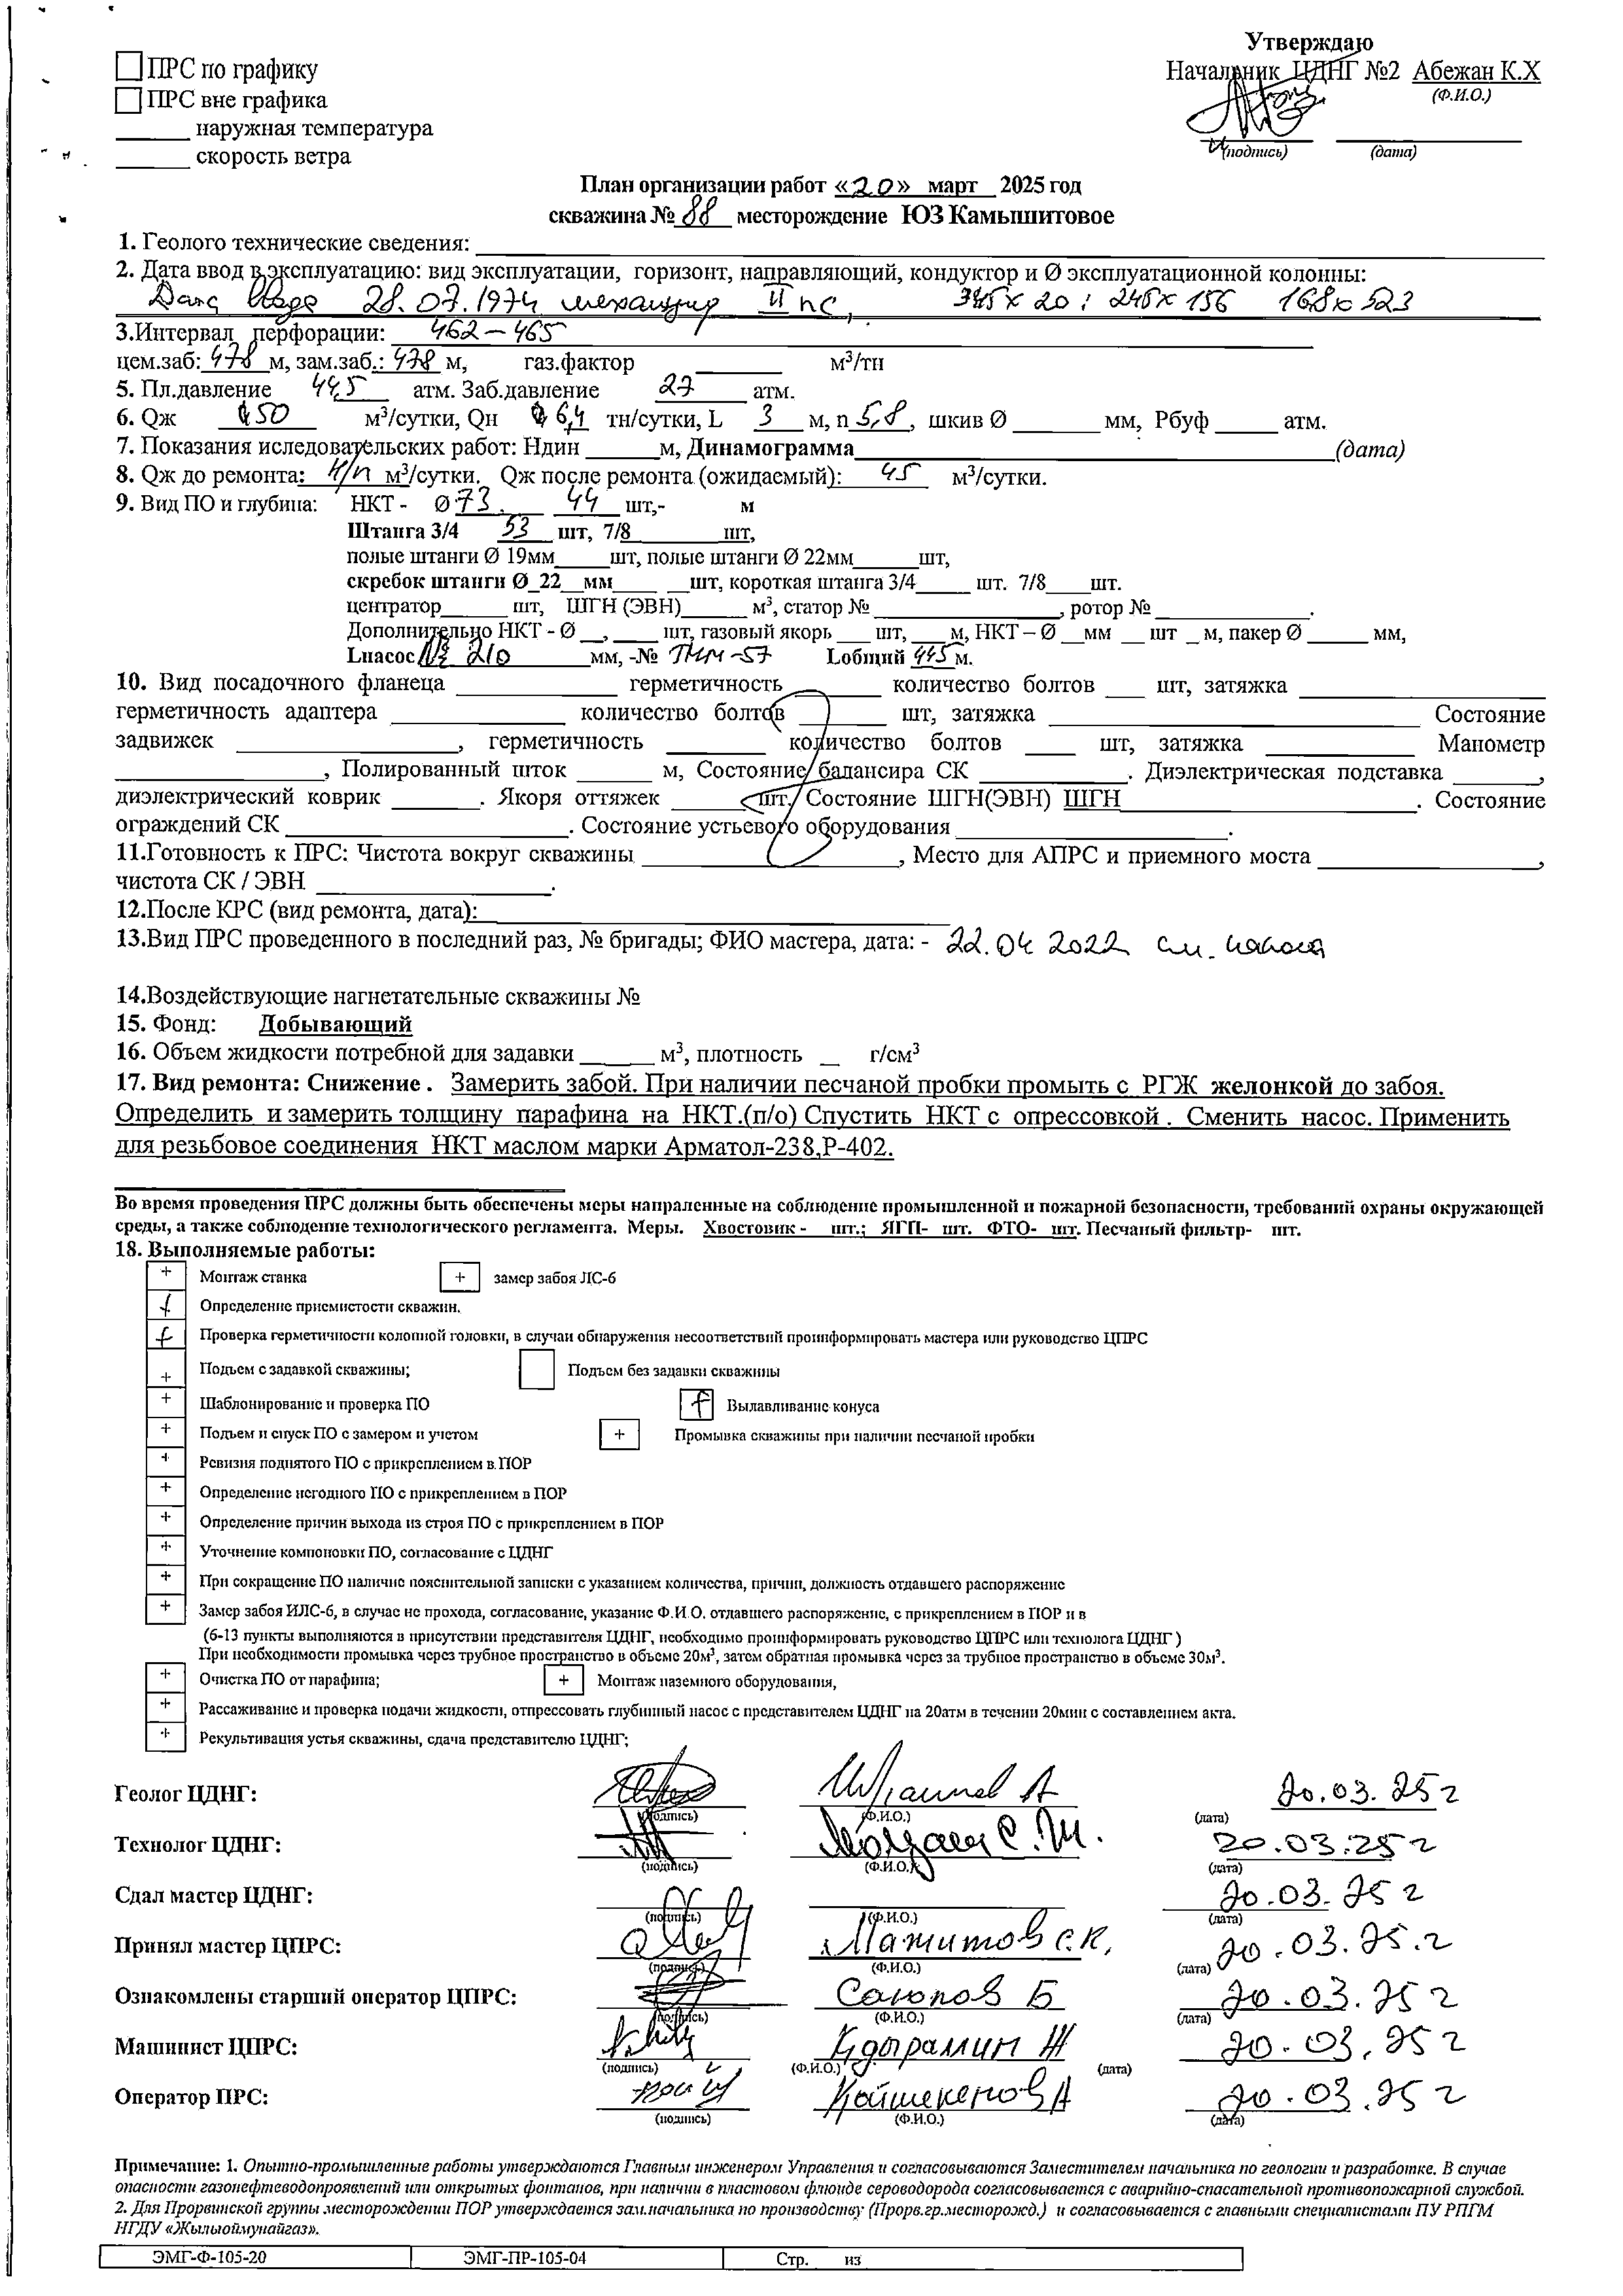 Утверждаю
ПРС по графику
Начальник ЦДНГ №2 Абежан К.Х
ПРС вне графика
(Ф.И.О.)
______ наружная температура
______ скорость ветра
(подпись) (дата)
План организации работ «20» март 2025 год
скважина № 88 месторождение ЮЗ Камышитовое
1. Геолого технические сведения:
2. Дата ввод в эксплуатацию: вид эксплуатации, горизонт, направляющий, кондуктор и Ø эксплуатационной колонны:
Дата ввода 28.07.1974 II пс, 345х20; 245х156 168х523
3.Интервал перфорации: 462-465
цем.заб: 478 м, зам.заб.: 478 м, газ.фактор ______ м³/тн
5. Пл.давление 44,5 атм. Заб.давление 27 атм.
6. Qж 50 м³/сутки, Qн 6,4 тн/сутки, L 3 м, n 5,8, шкив Ø ______ мм, Рбуф _____ атм.
7. Показания иследовательских работ: Ндин ______м, Динамограмма______(дата)
8. Qж до ремонта: н/п м³/сутки. Qж после ремонта (ожидаемый): 45 м³/сутки.
9. Вид ПО и глубина: НКТ - Ø 73. 44 шт,- м
Штанга 3/4 53 шт, 7/8______шт,
полые штанги Ø 19мм_____шт, полые штанги Ø 22мм_____шт,
скребок штанги Ø_22__мм____ __шт, короткая штанга 3/4_____ шт. 7/8____шт.
центратор______ шт, ШГН (ЭВН)______ м³, статор № ______, ротор № ______.
Дополнительно НКТ - Ø __, ____ шт, газовый якорь ___ шт, ___м, НКТ – Ø __мм __ шт _ м, пакер Ø _____ мм,
Lнасос № 210 мм, -№ ТНМ-57 Lобщий 445 м.
10. Вид посадочного фланеца ______ герметичность ______ количество болтов ___ шт, затяжка ______
герметичность адаптера ______ количество болтов ______ шт, затяжка ______ Состояние
задвижек ______, герметичность ______ количество болтов ____ шт, затяжка ______ Манометр
______, Полированный шток ______ м, Состояние балансира СК ______. Диэлектрическая подставка ______,
диэлектрический коврик ______. Якоря оттяжек ______ шт. Состояние ШГН(ЭВН) ШГН______. Состояние
ограждений СК ______. Состояние устьевого оборудования ______.
11.Готовность к ПРС: Чистота вокруг скважины ______, Место для АПРС и приемного моста ______,
чистота СК / ЭВН ______.
12.После КРС (вид ремонта, дата):
13.Вид ПРС проведенного в последний раз, № бригады; ФИО мастера, дата: - 22.04 2022 см. насоса
14.Воздействующие нагнетательные скважины №
15. Фонд: Добывающий
16. Объем жидкости потребной для задавки ______ м³, плотность __ г/см³
17. Вид ремонта: Снижение . Замерить забой. При наличии песчаной пробки промыть с РГЖ желонкой до забоя.
Определить и замерить толщину парафина на НКТ.(п/о) Спустить НКТ с опрессовкой . Сменить насос. Применить
для резьбовое соединения НКТ маслом марки Арматол-238,Р-402.
Во время проведения ПРС должны быть обеспечены меры напраленные на соблюдение промышленной и пожарной безопасности, требований охраны окружающей
среды, а также соблюдение технологического регламента. Меры. Хвостовик - шт.; ЯГП- шт. ФТО- шт. Песчаный фильтр- шт.
18. Выполняемые работы:
+ Монтаж станка + замер забоя ЛС-6
+ Определение приемистости скважин.
+ Проверка герметичности колонной головки, в случаи обнаружения несоответствий проинформировать мастера или руководство ЦПРС
+ Подъем с задавкой скважины; Подъем без задавки скважины
+ Шаблонирование и проверка ПО + Вылавливание конуса
+ Подъем и спуск ПО с замером и учетом + Промывка скважины при наличии песчаной пробки
+ Ревизия поднятого ПО с прикреплением в ПОР
+ Определение негодного ПО с прикреплением в ПОР
+ Определение причин выхода из строя ПО с прикреплением в ПОР
+ Уточнение компоновки ПО, согласование с ЦДНГ
+ При сокращение ПО наличие пояснительной записки с указанием количества, причин, должность отдавшего распоряжение
+ Замер забоя ИЛС-6, в случае не прохода, согласование, указание Ф.И.О. отдавшего распоряжение, с прикреплением в ПОР и в
(6-13 пункты выполняются в присутствии представителя ЦДНГ, необходимо проинформировать руководство ЦПРС или технолога ЦДНГ )
При необходимости промывка через трубное пространство в объеме 20м³, затем обратная промывка через за трубное пространство в объеме 30м³.
+ Очистка ПО от парафина; + Монтаж наземного оборудования,
+ Рассаживание и проверка подачи жидкости, отпрессовать глубинный насос с представителем ЦДНГ на 20атм в течении 20мин с составлением акта.
+ Рекультивация устья скважины, сдача представителю ЦДНГ;
Геолог ЦДНГ: 20.03.25 г
(подпись) (Ф.И.О.) (дата)
Технолог ЦДНГ: С.Т. 20.03.25 г
(подпись) (Ф.И.О.) (дата)
Сдал мастер ЦДНГ: 20.03.25 г
(подпись) (Ф.И.О.) (дата)
Принял мастер ЦПРС: Мажитов С.К. 20.03.25.г
(подпись) (Ф.И.О.) (дата)
Ознакомлены старший оператор ЦПРС: Саюпов Б 20.03.25 г
(подпись) (Ф.И.О.) (дата)
Машинист ЦПРС: Кдырамин Ж 20.03.25 г
(подпись) (Ф.И.О.) (дата)
Оператор ПРС: Койшекенов А 20.03.25 г
(подпись) (Ф.И.О.) (дата)
Примечание: 1. Опытно-промышленные работы утверждаются Главным инженером Управления и согласовываются Заместителем начальника по геологии и разработке. В случае
опасности газонефтеводопроявлений или открытых фонтанов, при наличии в пластовом флюиде сероводорода согласовывается с аварийно-спасательной противопожарной службой.
2. Для Прорвинской группы месторождении ПОР утверждается зам.начальника по производству (Прорв.гр.месторожд.) и согласовывается с главными специалистами ПУ РПГМ
НГДУ «Жылыоймунайгаз».
ЭМГ-Ф-105-20 ЭМГ-ПР-105-04 Стр. из